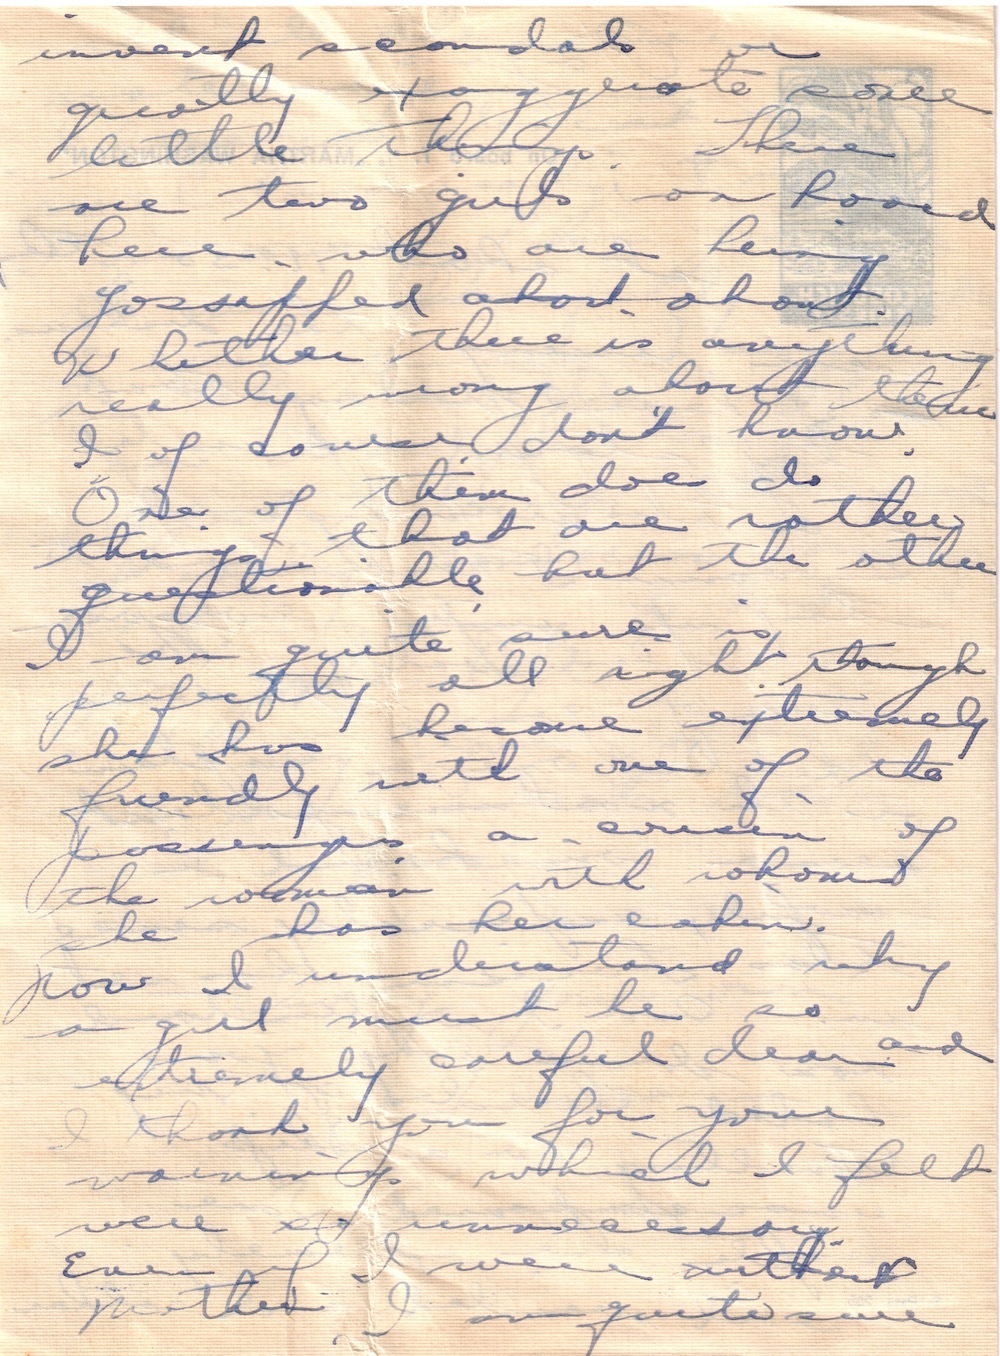 invent scandals or
greatly exaggerate some
little thing. There
are two girls on board
here who are being
gossipped about about.
Whether there is anything
really wrong about them
I of course don't know.
One of them does do
things that are rather
questionable but the other
I am quite sure is
perfectly all right though
she has become extremely
friendly with one of the
passengers a cousin of
the woman with whom
she has her cabin.
Now I understand why
a girl must be so
extremely careful dear and
I thank you for your
warnings which I felt
were so unnecessary.
Even if I were without
Mother I am quite sure